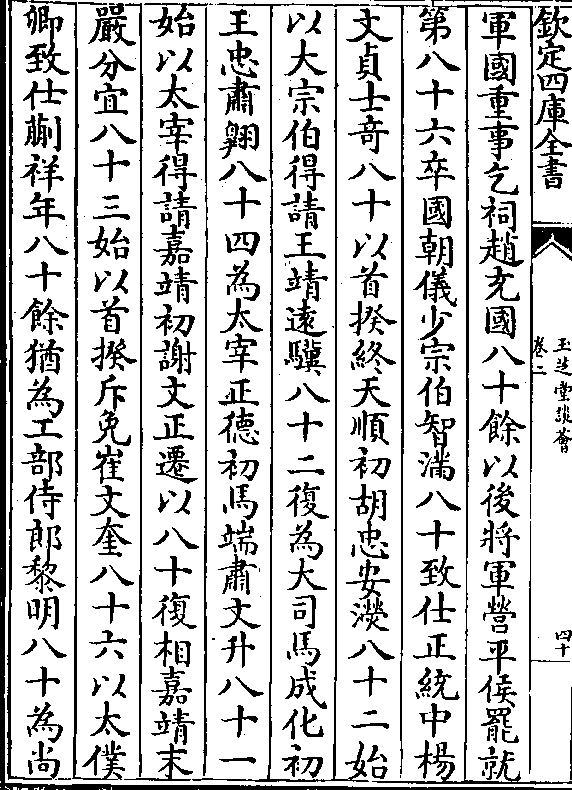 欽定四庫全書
玉芝堂談薈
卷二
四十
軍國重事乞祠趙充國八十餘以後將軍營平侯罷就
第八十六卒國朝儀少宗伯智滿八十致仕正統中楊
文貞士竒八十以首揆終天順初胡忠安濙八十二始
以大宗伯得請王靖遠驥八十二復為大司馬成化初
王忠肅翺八十四為太宰正德初馬端肅文升八十一
始以太宰得請嘉靖初謝文正遷以八十復相嘉靖末
嚴分宜八十三始以首揆斥免崔文奎八十六以太僕
卿致仕蒯祥年八十餘猶為工部侍郎黎明八十為尚